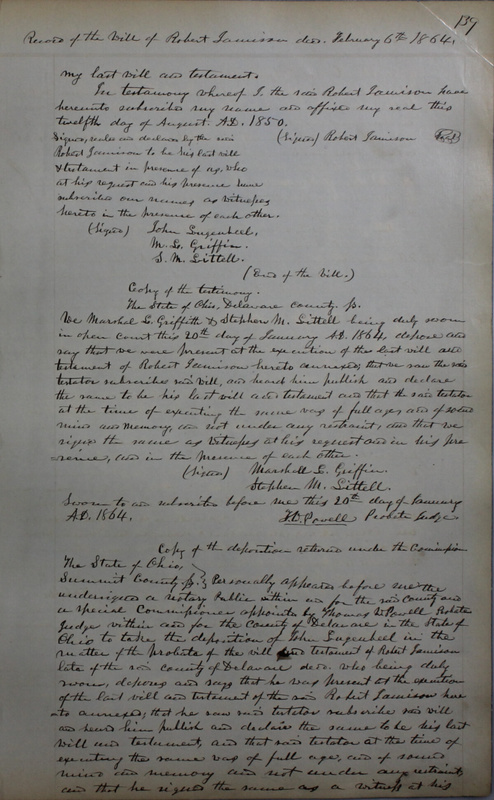 139
Record of the Will of Robert Jamison decd. February 6th 1864.
my last will and testament.
In testimony whereof I, the said Robert Jamison have
hereunto subscribed my name and affixed my seal this
twelfth day of August A.D. 1850.
Signed, sealed and declared by the said (Signed) Robert Jamison Seal
Robert Jamison to be his last will
& testament in presence of us, who
at his request and his presence have
subscribed our names as witnesses
hereto in the presence of each other.
(Signed) John Lugenheel,
M. L. Griffin.
S. M. Littell.
(End of the Will.)
Copy of the testimony.
The State of Ohio, Delaware County ss.
We Marshal L. Griffith & Stephen M. Littell being duly sworn
in open Court this 20th day of January A.D. 1864, depose and
say that we were present at the execution of the last will and
testament of Robert Jamison hereto annexed, that we saw the said
testator subscribe said will, and heard him publish and declare
the same to be his last will and testament and that the said testator
at the time of executing the same was of full age, and of sound
mind and memory, and not under any restraint, and that we
signed the same as witnesses at his request and in his pre-
sence, and in the presence of each other.
(Signed) Marshall L. Griffin.
Stephen M. Littell.
Sworn to and subscribed before me this 20th day of January
A.D. 1864. T. W. Powell Probate Judge
Copy of the deposition returned under the Commission
The State of Ohio,
Summit County ss. Personally appeared before me the
undersigned a Notary Public within and for the said County and
a special Commissioner appointed by Thomas W. Powell Probate
Judge within and for the County of Delaware in the State of
Ohio to take the deposition of John Lugenheel in the
matter of the probate of the will and testament of Robert Jamison
late of the said County of Delaware decd. who being duly
sworn, deposes and says that he was present at the execution
of the last will and testament of the said Robert Jamison here-
to annexed; that he saw said testator subscribe said will
and heard him publish and declare the same to be his last
will and testament, and that said testator at the time of
executing the same was of full age, and of sound
mind and memory and not under any restraint,
and that he signed the same as a witness at his